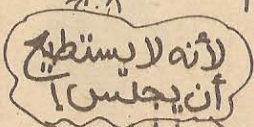 لأنه لا يستطيع
أن يجلس!